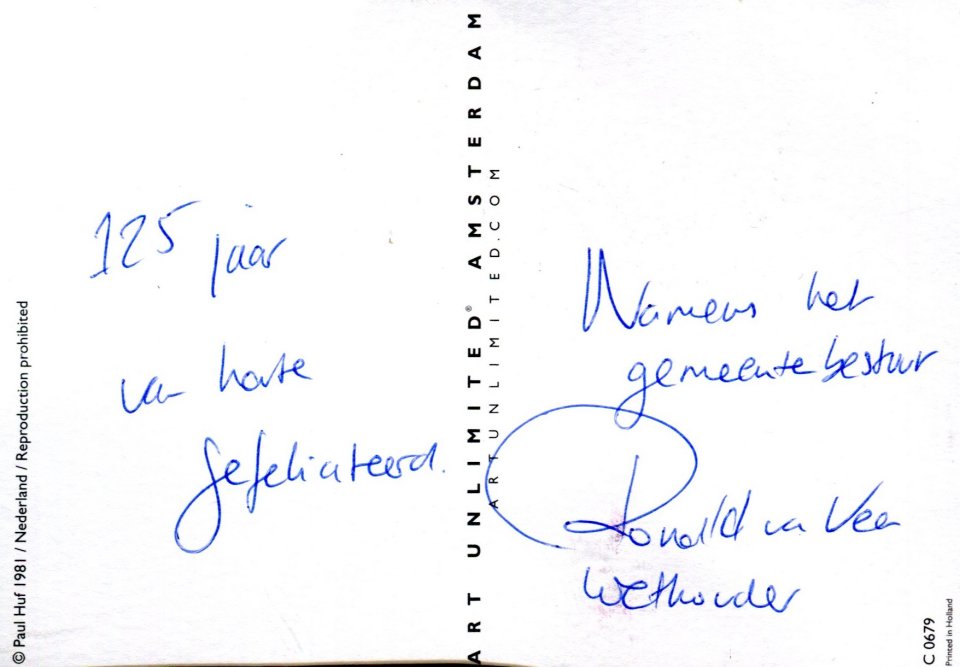 125 jaar
van harte
gefeliciteerd.
Namens het
gemeentebestuur
Ronald van Veen
Wethouder
ART UNLIMITED® AMSTERDAM
ARTUNLIMITED.COM
© Paul Huf 1981 / Nederland / Reproduction prohibited
C 0679
Printed in Holland